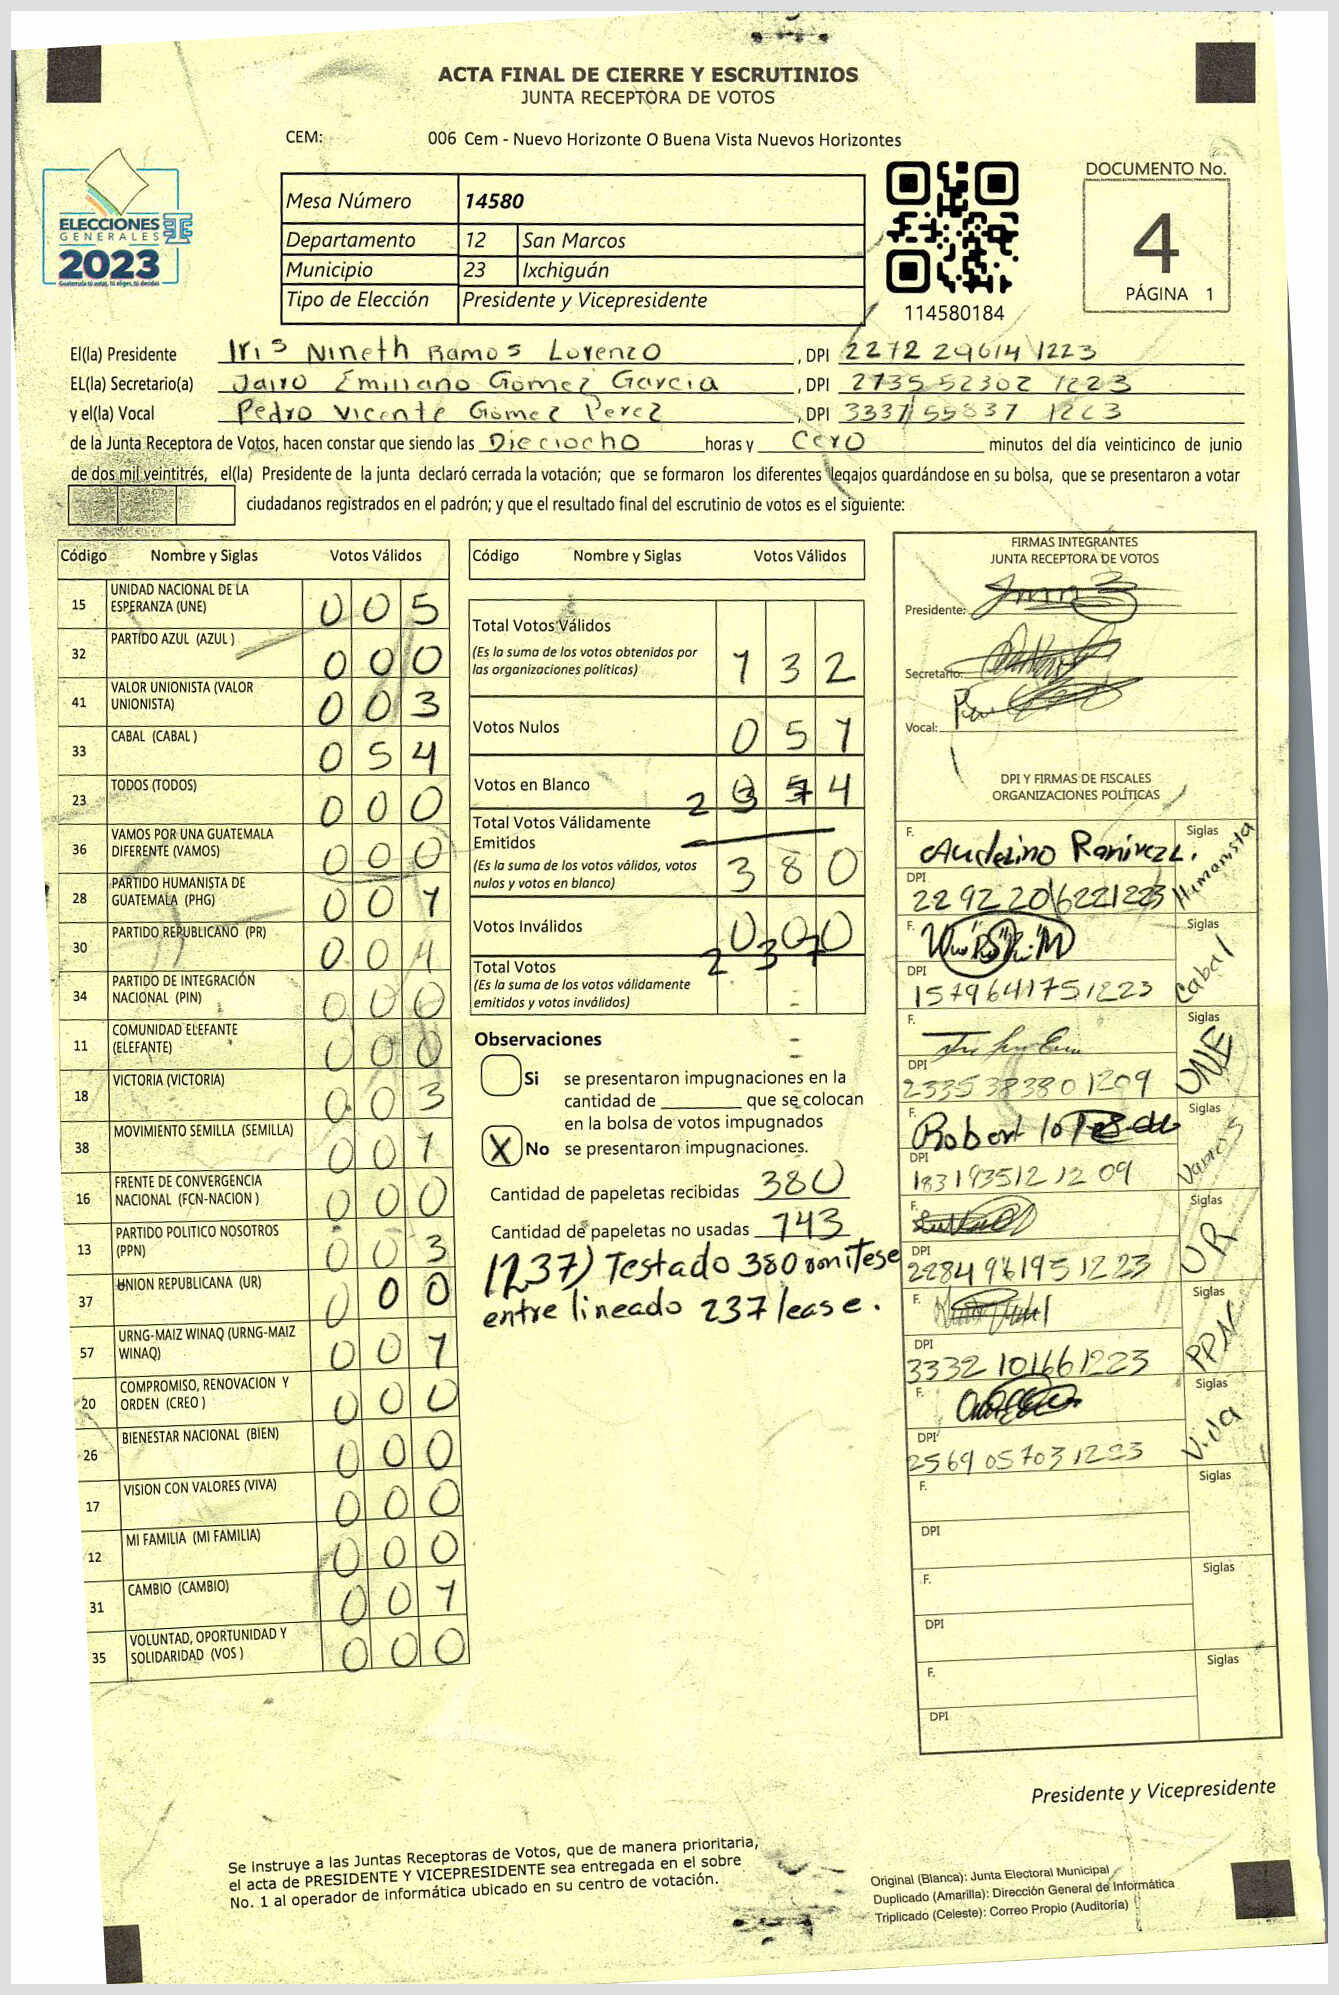 ACTA FINAL DE CIERRE Y ESCRUTINIOS
JUNTA RECEPTORA DE VOTOS
CEM: 006 Cem - Nuevo Horizonte O Buena Vista Nuevos Horizontes
ELECCIONES
GENERALES
2023
Guatemala tú votas, tú eliges, tú decides
Mesa Número 14580
Departamento 12 San Marcos
Municipio 23 Ixchiguán
Tipo de Elección Presidente y Vicepresidente
114580184
DOCUMENTO No.
4
PÁGINA 1
El(la) Presidente Iris Nineth Ramos Lorenzo , DPI 2272 29614 1223
EL(la) Secretario(a) Jairo Emiliano Gómez Garcia , DPI 2735 52302 1223
y el(la) Vocal Pedro Vicente Gómez Perez , DPI 3337 55837 1223
de la Junta Receptora de Votos, hacen constar que siendo las Dieciocho horas y Cero minutos del día veinticinco de junio
de dos mil veintitrés, el(la) Presidente de la junta declaró cerrada la votación; que se formaron los diferentes legajos guardándose en su bolsa, que se presentaron a votar
ciudadanos registrados en el padrón; y que el resultado final del escrutinio de votos es el siguiente:
Código Nombre y Siglas Votos Válidos
15 UNIDAD NACIONAL DE LA ESPERANZA (UNE) 0 0 5
32 PARTIDO AZUL (AZUL ) 0 0 0
41 VALOR UNIONISTA (VALOR UNIONISTA) 0 0 3
33 CABAL (CABAL ) 0 5 4
23 TODOS (TODOS) 0 0 0
36 VAMOS POR UNA GUATEMALA DIFERENTE (VAMOS) 0 0 0
28 PARTIDO HUMANISTA DE GUATEMALA (PHG) 0 0 1
30 PARTIDO REPUBLICANO (PR) 0 0 4
34 PARTIDO DE INTEGRACIÓN NACIONAL (PIN) 0 0 0
11 COMUNIDAD ELEFANTE (ELEFANTE) 0 0 0
18 VICTORIA (VICTORIA) 0 0 3
38 MOVIMIENTO SEMILLA (SEMILLA) 0 0 1
16 FRENTE DE CONVERGENCIA NACIONAL (FCN-NACION ) 0 0 0
13 PARTIDO POLITICO NOSOTROS (PPN) 0 0 3
37 UNION REPUBLICANA (UR) 0 0 0
57 URNG-MAIZ WINAQ (URNG-MAIZ WINAQ) 0 0 1
20 COMPROMISO, RENOVACION Y ORDEN (CREO ) 0 0 0
26 BIENESTAR NACIONAL (BIEN) 0 0 0
17 VISION CON VALORES (VIVA) 0 0 0
12 MI FAMILIA (MI FAMILIA) 0 0 0
31 CAMBIO (CAMBIO) 0 0 1
35 VOLUNTAD, OPORTUNIDAD Y SOLIDARIDAD (VOS ) 0 0 0
Código Nombre y Siglas Votos Válidos
Total Votos Válidos 1 3 2
(Es la suma de los votos obtenidos por
las organizaciones políticas)
Votos Nulos 0 5 1
Votos en Blanco 4
Total Votos Válidamente
Emitidos
(Es la suma de los votos válidos, votos
nulos y votos en blanco) 3 8 0
Votos Inválidos 0 0 0
2 3 7
Total Votos
(Es la suma de los votos válidamente
emitidos y votos inválidos)
Observaciones
Si se presentaron impugnaciones en la
cantidad de que se colocan
en la bolsa de votos impugnados
X No se presentaron impugnaciones.
Cantidad de papeletas recibidas 380
Cantidad de papeletas no usadas 143
(237) Testado 380 omitese
entre lineado 237 lease.
FIRMAS INTEGRANTES
JUNTA RECEPTORA DE VOTOS
Presidente:
Secretario:
Vocal:
DPI Y FIRMAS DE FISCALES
ORGANIZACIONES POLÍTICAS
F. Audelino Ramirez L. Siglas Humanista
DPI 2292 206221223
F. Siglas Cabal
DPI 1579641751223
F. Siglas UNE
DPI 2335383801209
F. Roberto Siglas Vamos
DPI 1831935121209
F. Siglas UR
DPI 2284961951223
F. Siglas PPN
DPI 3332 101661223
F. Siglas Viva
DPI 2569 057031223
F. Siglas
DPI
F. Siglas
DPI
F. Siglas
DPI
Presidente y Vicepresidente
Se instruye a las Juntas Receptoras de Votos, que de manera prioritaria,
el acta de PRESIDENTE Y VICEPRESIDENTE sea entregada en el sobre
No. 1 al operador de informática ubicado en su centro de votación.
Original (Blanca): Junta Electoral Municipal
Duplicado (Amarilla): Dirección General de Informática
Triplicado (Celeste): Correo Propio (Auditoría)